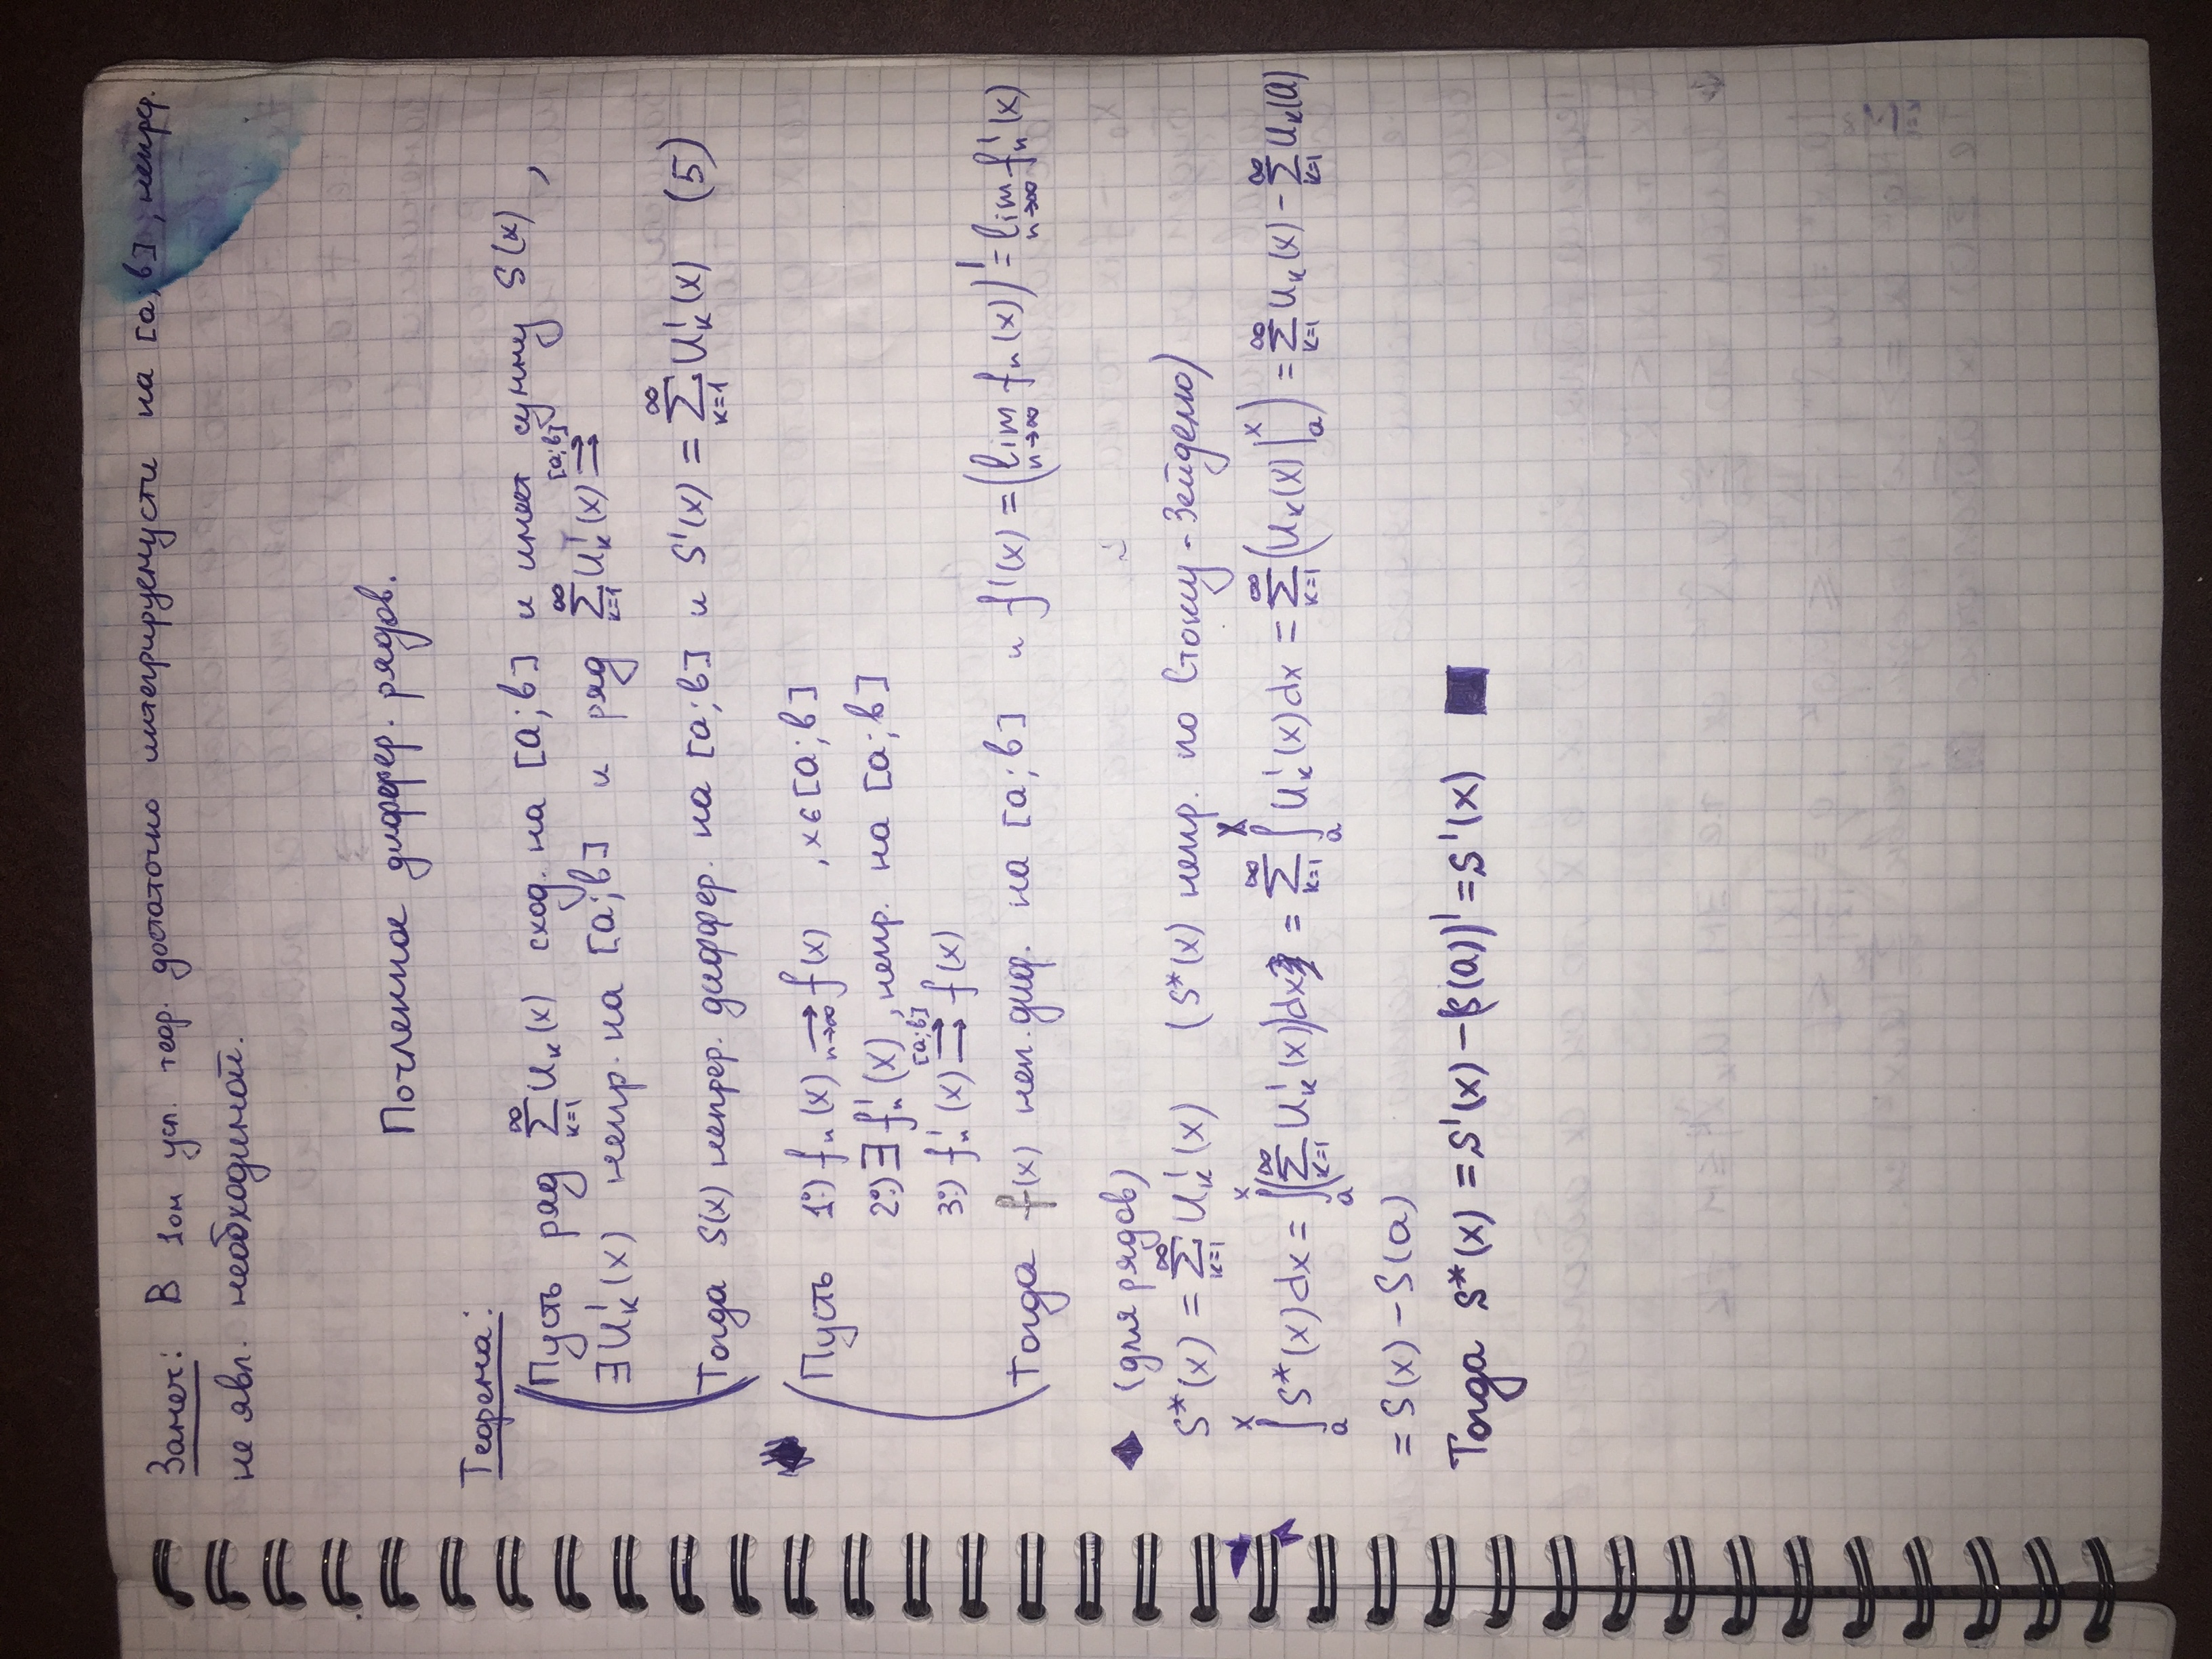 Замеч: В 1ом усл. теор. достаточно интегрируемусти на [a;b], непрер.
не явл. необходимой.
Почленное диффер. рядов.
Теорема:
Пусть ряд ∑_{k=1}^{∞} U_k(x) сход. на [a;b] и имеет сумму S(x),
∃ U'_k(x) непр. на [a;b] и ряд ∑_{k=1}^{∞} U'_k(x) ⇉^{[a;b]}
Тогда S(x) непрер. диффер. на [a;b] и S'(x) = ∑_{k=1}^{∞} U'_k(x) (5)
Пусть 1°) f_n(x) →_{n→∞} f(x) , x∈[a;b]
2°) ∃ f'_n(x), непр. на [a;b]
3°) f'_n(x) ⇉^{[a;b]} f(x)
Тогда f(x) неп. диф. на [a;b] и f'(x) = (lim_{n→∞} f_n(x))' = lim_{n→∞} f'_n(x)
◆ (для рядов)
S*(x) = ∑_{k=1}^{∞} U'_k(x) (S*(x) непр. по Стоксу-Зейделю)
∫_a^x S*(x)dx = ∫_a^x (∑_{k=1}^{∞} U'_k(x))dx = ∑_{k=1}^{∞} ∫_a^x U'_k(x)dx = ∑_{k=1}^{∞} (U_k(x)|_a^x) = ∑_{k=1}^{∞} U_k(x) - ∑_{k=1}^{∞} U_k(a)
= S(x) - S(a)
Тогда S*(x) = S'(x) - (S(a))' = S'(x) ■